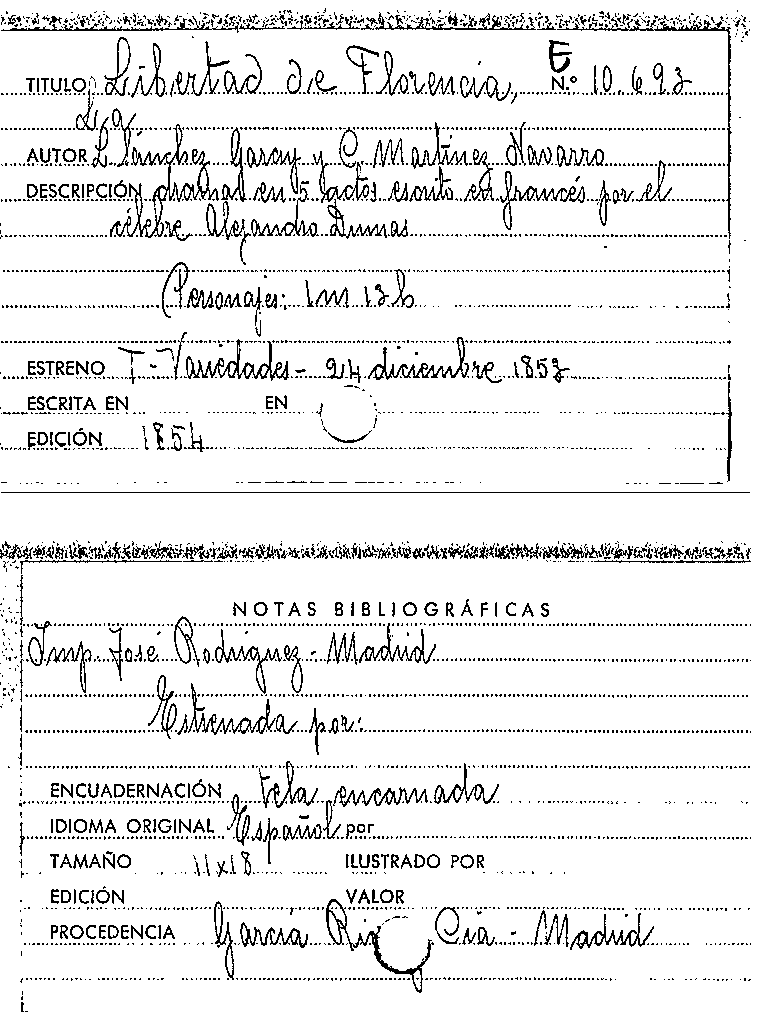 E
TITULO Libertad de Florencia, N.º 10.693
La
AUTOR L Sánchez Garay y C. Martínez Navarro
DESCRIPCIÓN drama en 5 actos escrito en francés por el
célebre Alejandro Dumas
Personajes: 1m 13h
ESTRENO T- Variedades - 24 diciembre 1853
ESCRITA EN EN
EDICIÓN 1854
NOTAS BIBLIOGRÁFICAS
Imp. José Rodríguez - Madrid
Estrenada por:
ENCUADERNACIÓN tela encarnada
IDIOMA ORIGINAL Español por
TAMAÑO 11x18 ILUSTRADO POR
EDICIÓN VALOR
PROCEDENCIA García Rico Cía - Madrid